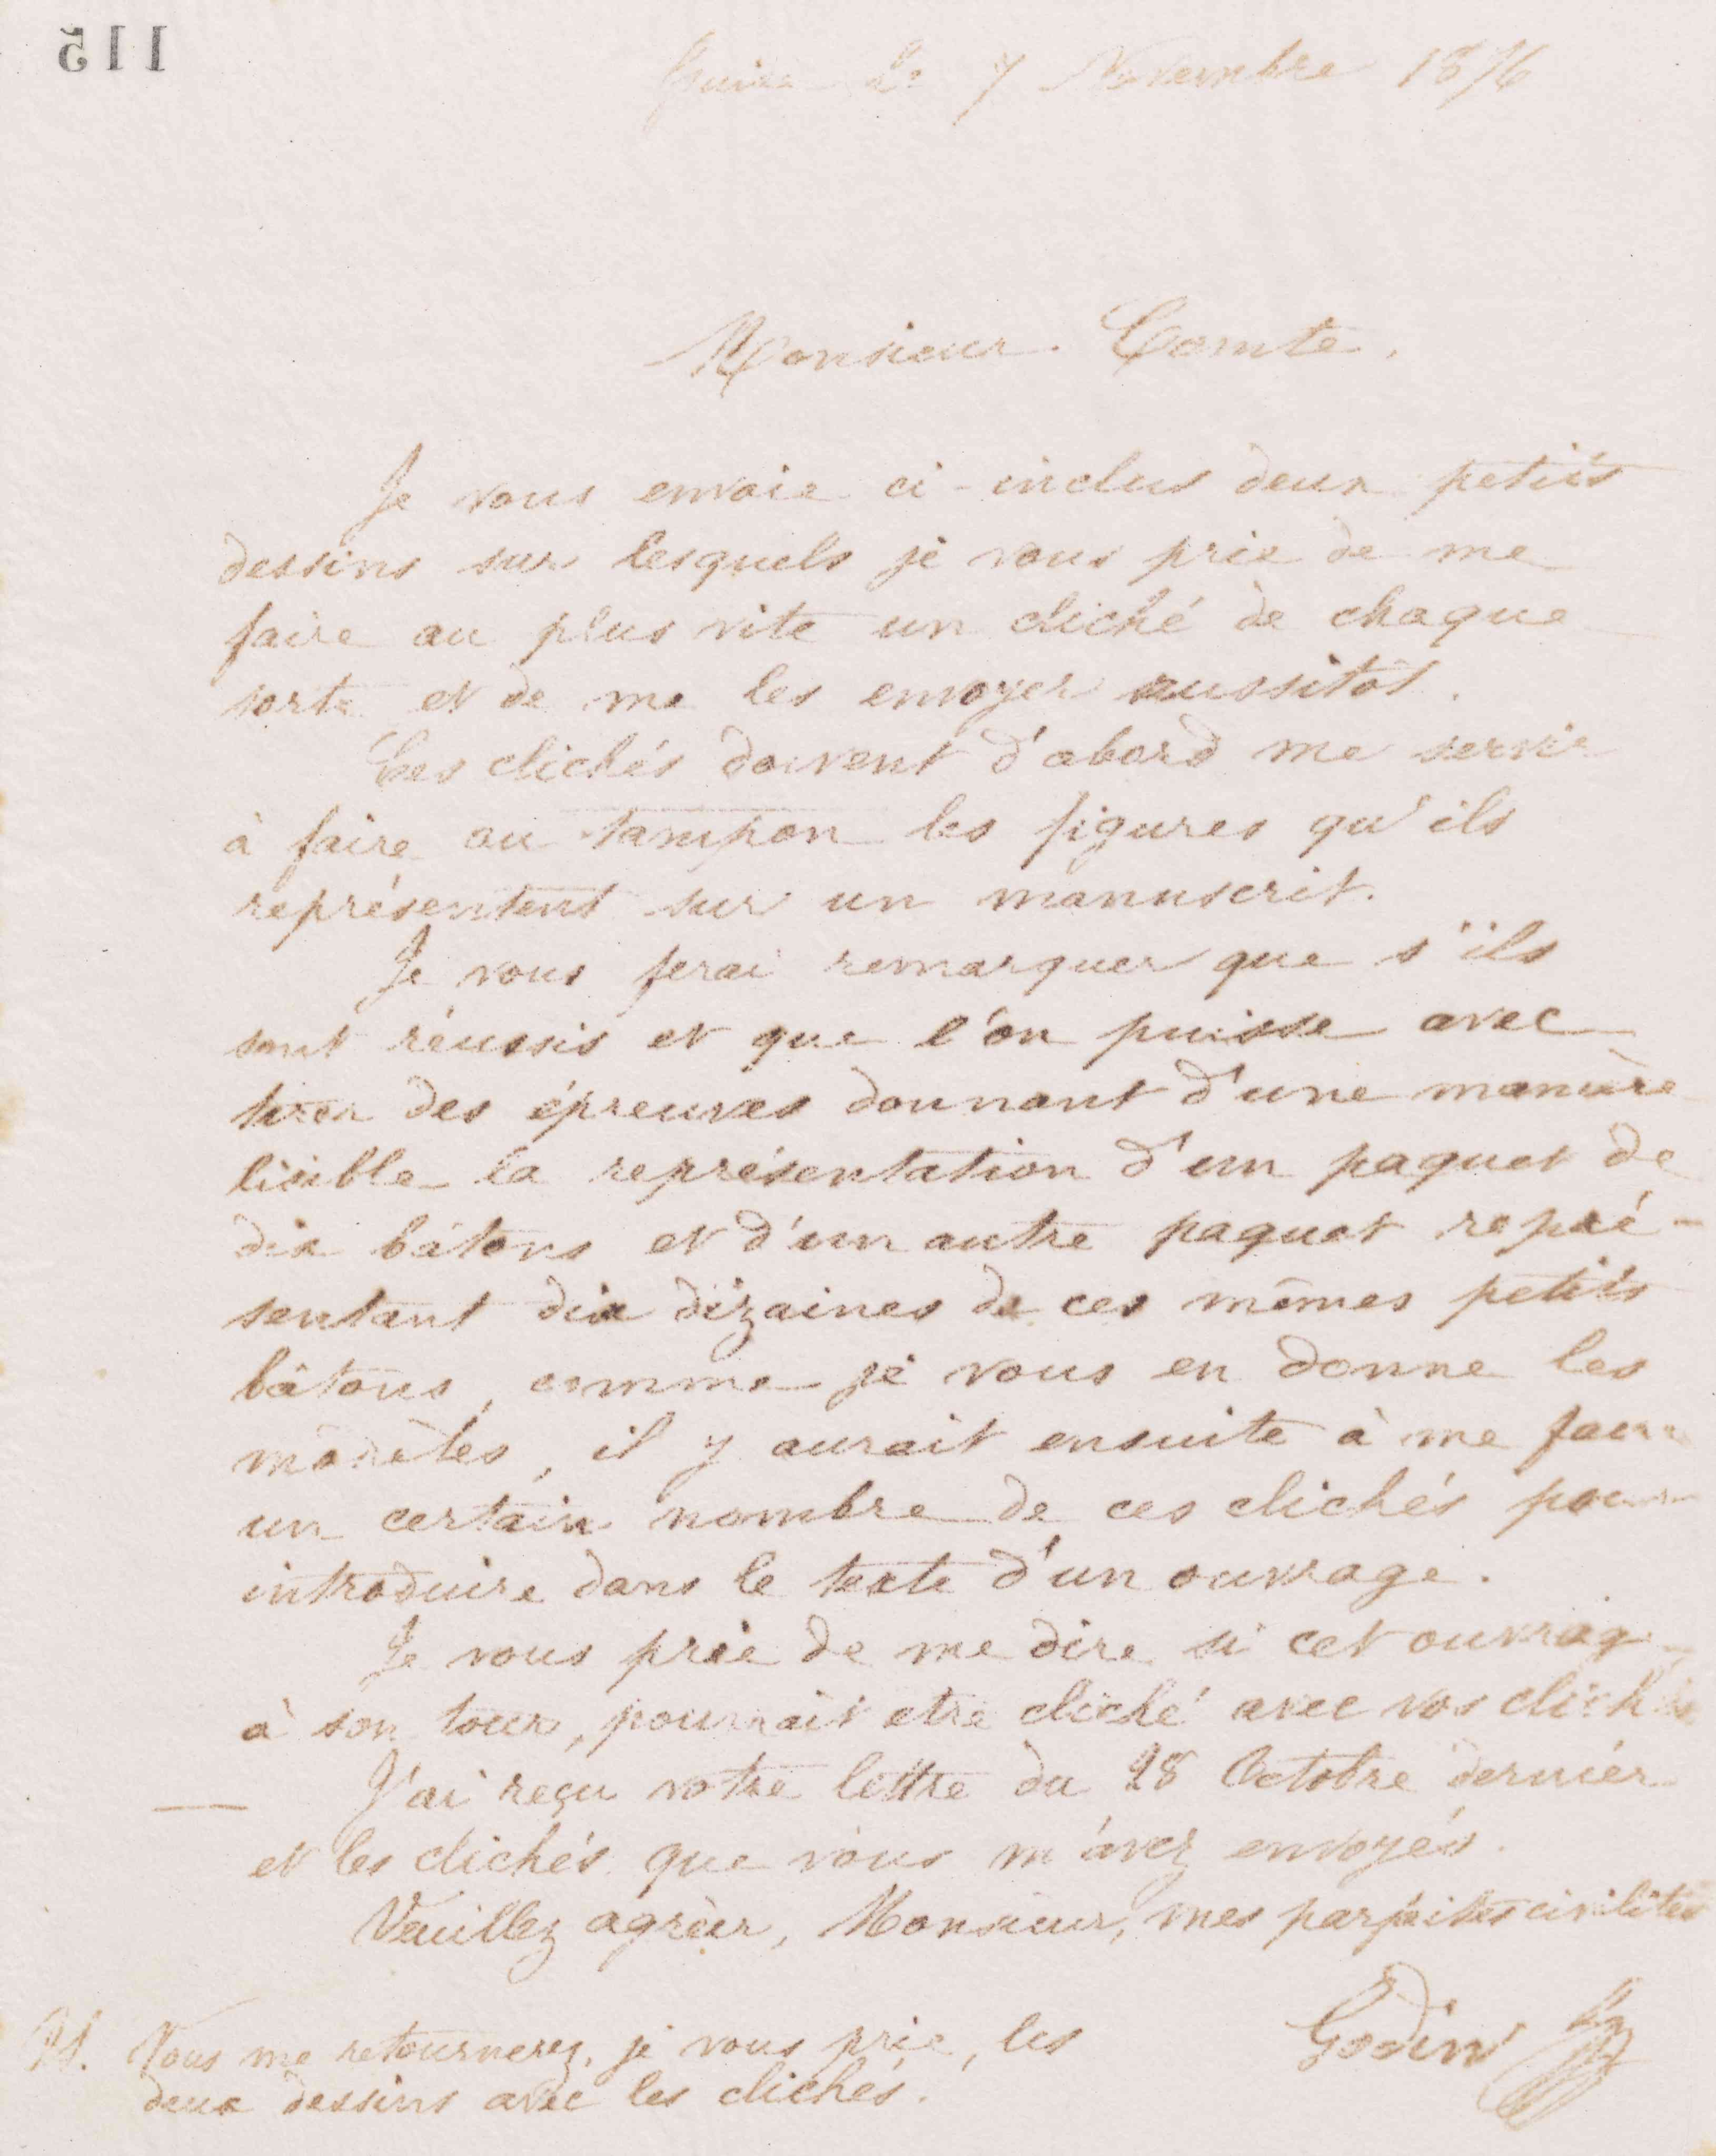 115
Guise le 7 Novembre 1876
Monsieur Comte,
Je vous envoie ci-inclus deux petits
dessins sur lesquels je vous prie de me
faire au plus vite un cliché de chaque
sorte et de me les envoyer aussitôt.
Ces clichés doivent d'abord me servir
à faire au tampon les figures qu'ils
représentent sur un manuscrit.
Je vous ferai remarquer que s'ils
sont réussis et que l'on puisse avec
tirer des épreuves donnant d'une manière
lisible la représentation d'un paquet de
dix bâtons et d'un autre paquet repré-
sentant dix dizaines de ces mêmes petits
bâtons, comme je vous en donne les
modèles, il y aurait ensuite à me faire
un certain nombre de ces clichés pour
introduire dans le texte d'un ouvrage.
Je vous prie de me dire si cet ouvrage
à son tour, pourrait etre cliché avec vos clichés
J'ai reçu votre lettre du 28 Octobre dernier
et les clichés que vous m'avez envoyés.
Veuillez agréer, Monsieur, mes parfaites civilités
Godin
Vous me retournerez, je vous prie, les
deux dessins avec les clichés.